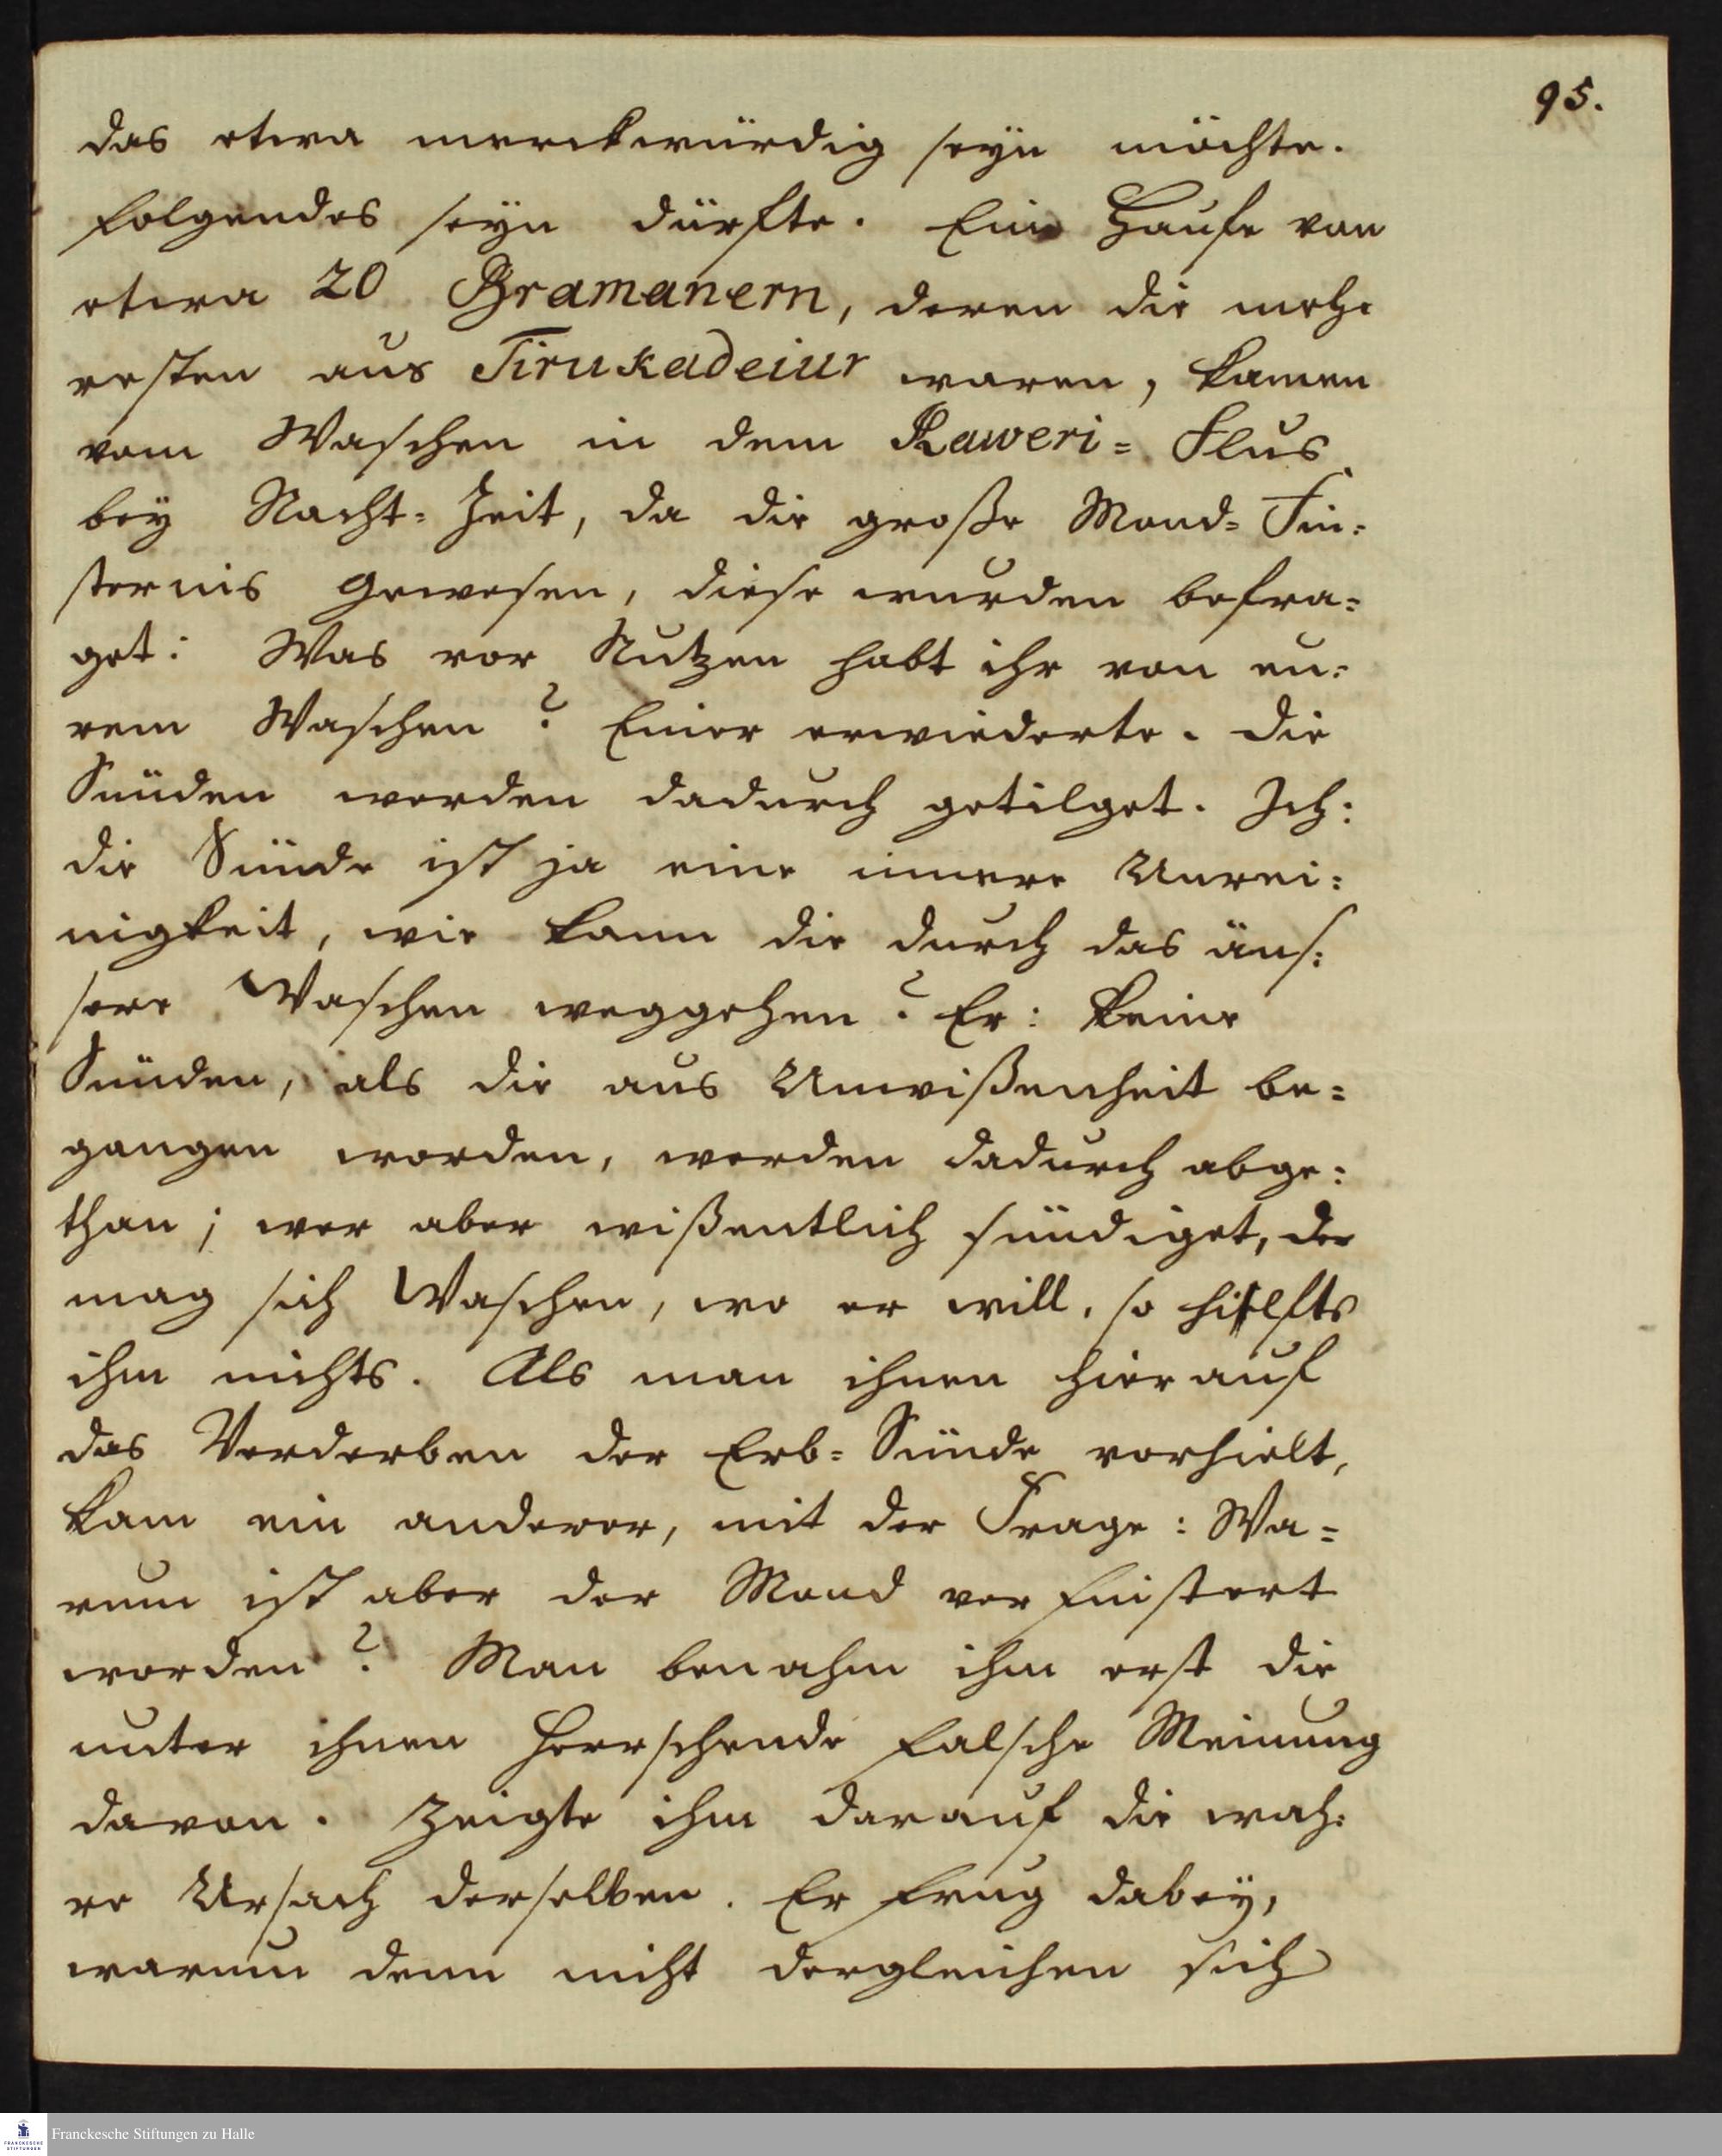 95.
das etwa merckwürdig seyn möchte.
folgendes seyn dürfte. Ein Haufe von
etwa 20 Bramanern, deren die meh:
resten aus Tirukadeiur waren, kamen
vom Waschen in dem Kaweri= Flus
bey Nacht=Zeit, da die große Mond=Fin:
sternis gewesen, diese wurden befra=
get: Was vor Nutzen habt ihr von eu:
rem Waschen? Einer erwiederte. die
Sünden werden dadurch getilget. Ich:
die Sünde ist ja eine innere Unrei:
nigkeit, wie kann die durch das äus:
sere Waschen weggehen? Er: keine
Sünden, als die aus Unwißenheit be=
gangen worden, werden dadurch abge:
than; wer aber wißentlich sündiget, der
mag sich Waschen, wo er will, so hilfts
ihm nichts. Als man ihnen hierauf
das Verderben der Erb=Sünde vorhielt,
kam ein anderer, mit der Frage: Wa=
rum ist aber der Mond verfinstert
worden? Man benahm ihm erst die
unter ihnen herrschende falsche Meinung
davon. Zeigte ihm darauf die wah:
re Ursach derselben. Er frug dabey,
warum denn nicht dergleichen sich
Franckesche Stiftungen zu Halle
FRANCKESCHE
STIFTUNGEN